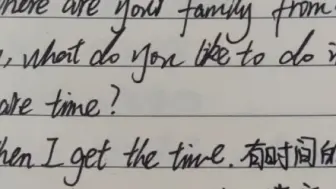 here are your family from
, what do you like to do i
are time?
hen I get the time. 有时间的